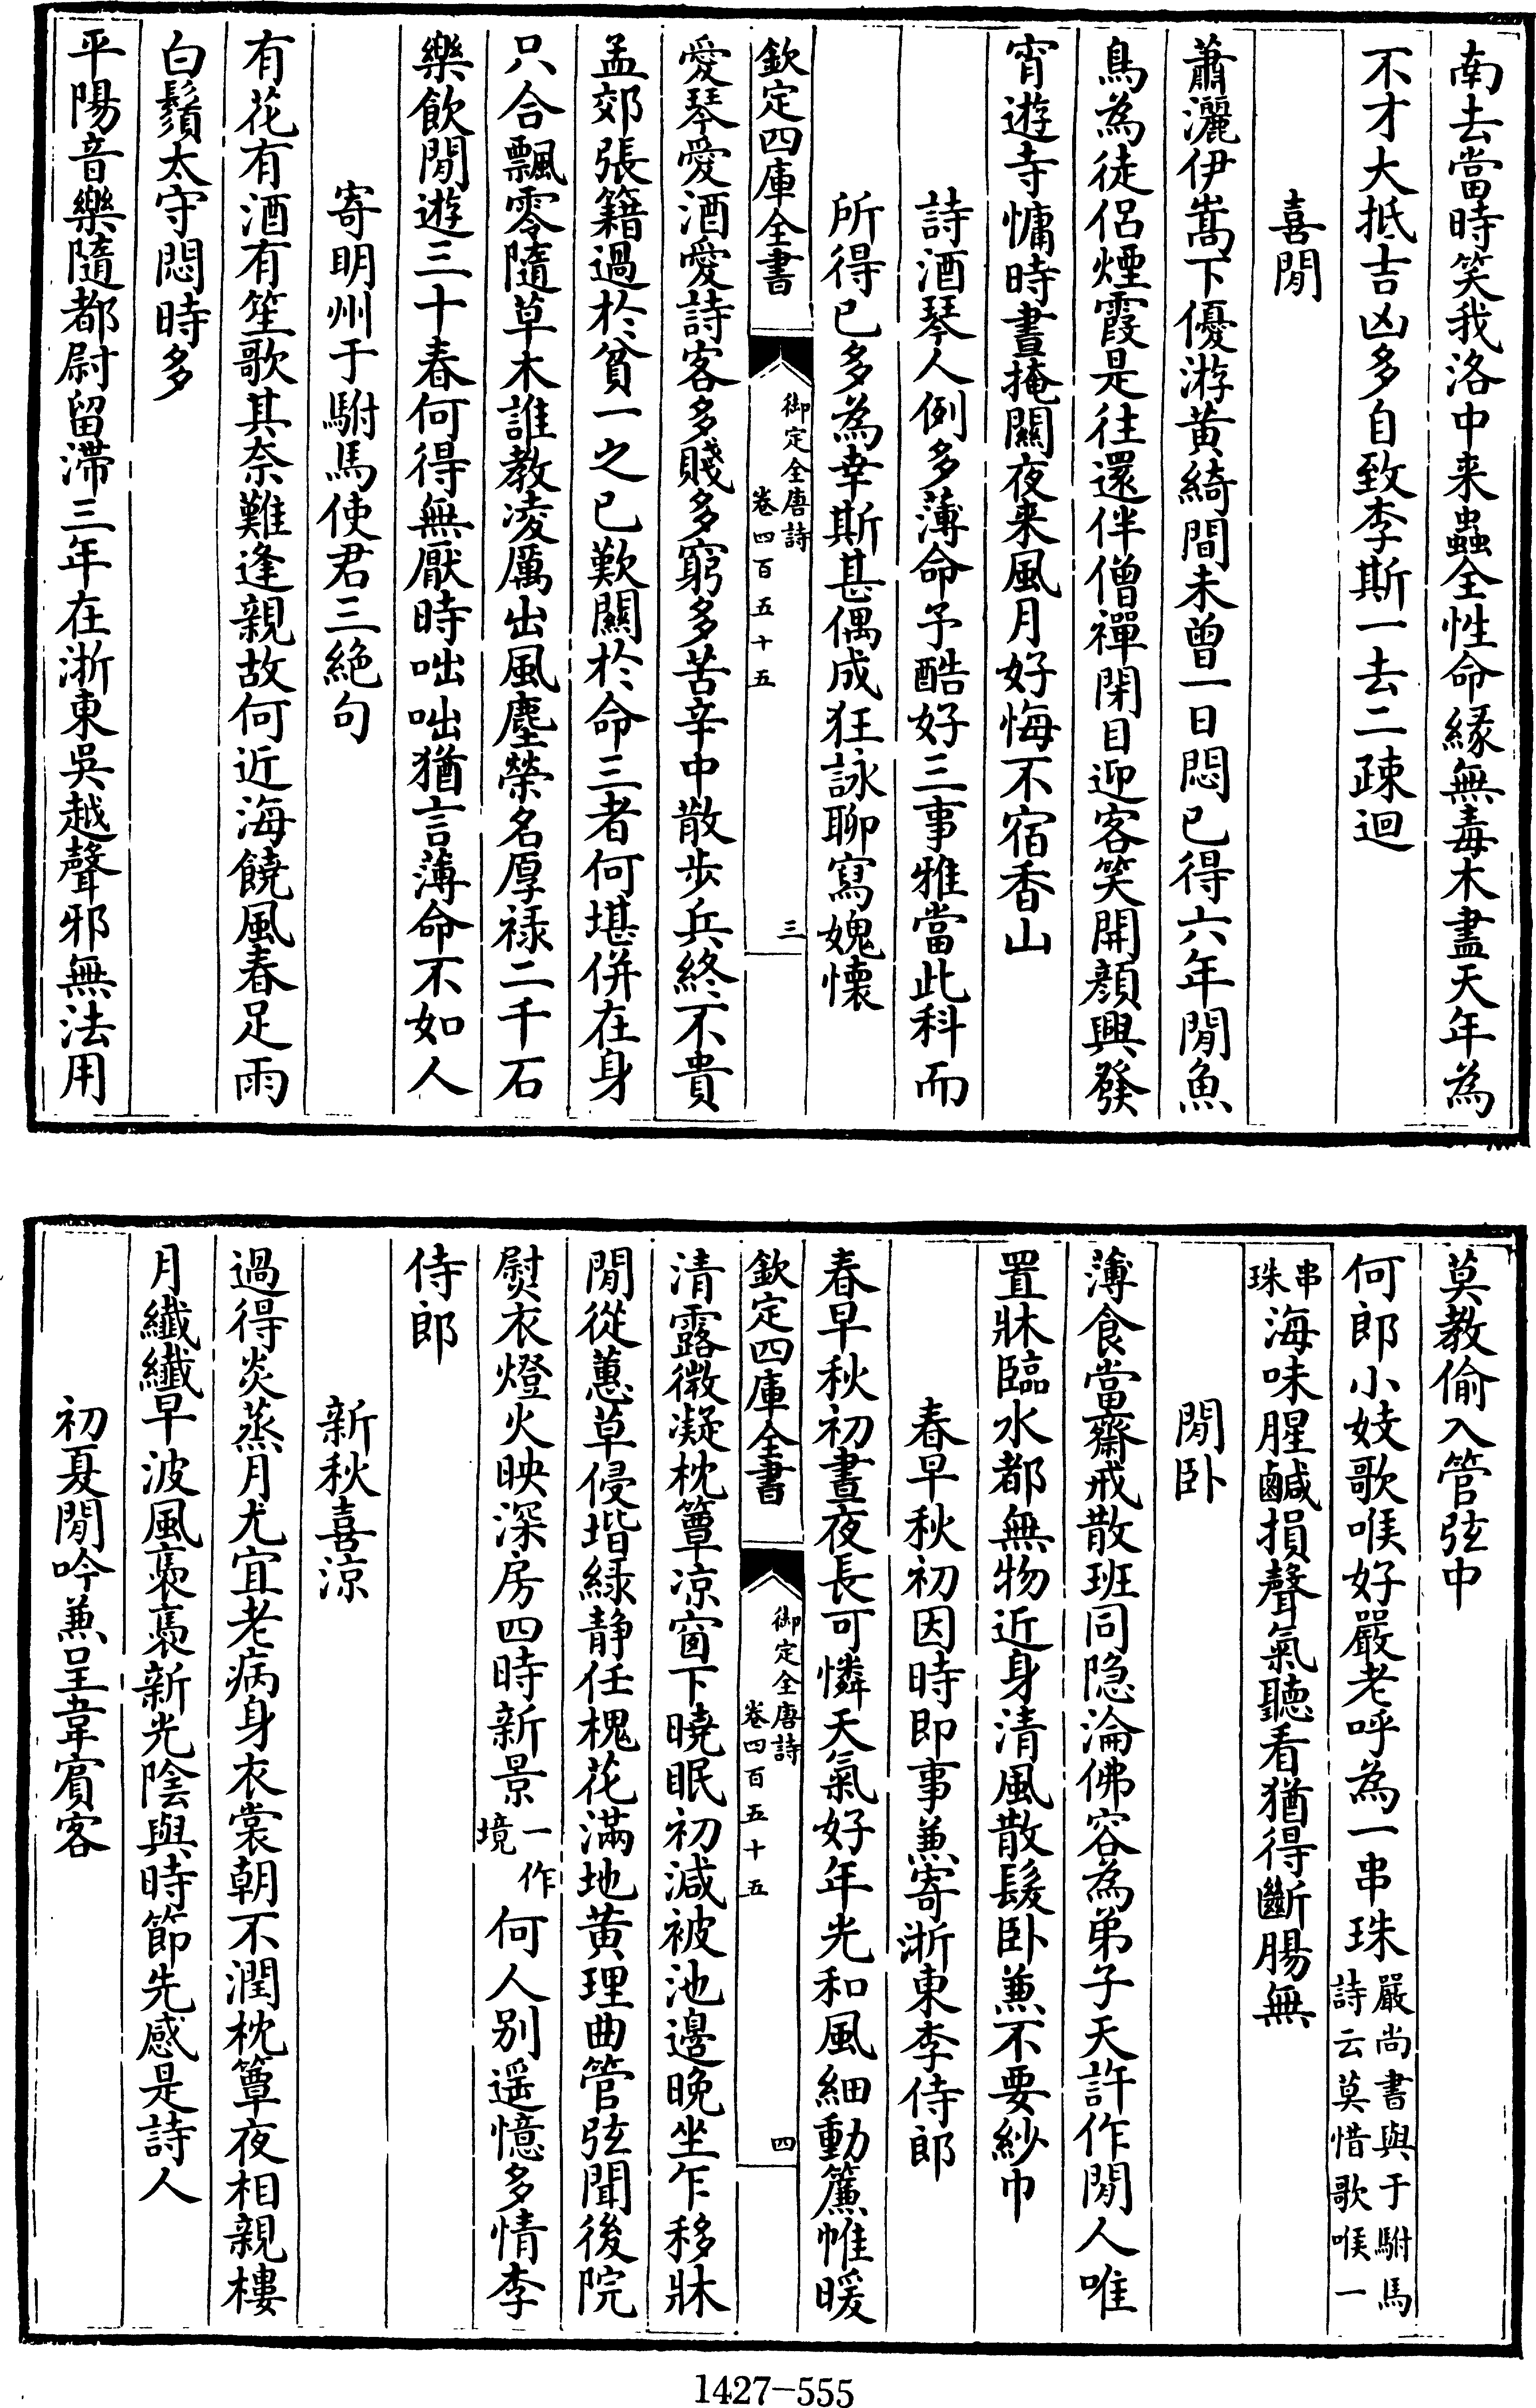 南去當時笑我洛中来蟲全性命緣無毒木盡天年為
不才大抵吉凶多自致李斯一去二疎迴
喜閒
蕭灑伊嵩下優游黄綺間未曾一日悶已得六年閒魚
鳥為徒侣煙霞是往還伴僧禪閉目迎客笑開顔興發
宵遊寺慵時晝掩關夜来風月好悔不宿香山
詩酒琴人例多薄命予酷好三事雅當此科而
所得已多為幸斯甚偶成狂詠聊寫媿懷
欽定四庫全書
御定全唐詩
卷四百五十五
三
愛琴愛酒愛詩客多賤多窮多苦辛中散步兵終不貴
孟郊張籍過於貧一之已歎關於命三者何堪併在身
只合飄零隨草木誰教凌厲出風塵榮名厚禄二千石
樂飲閒遊三十春何得無厭時咄咄猶言薄命不如人
寄明州于駙馬使君三絶句
有花有酒有笙歌其奈難逢親故何近海饒風春足雨
白鬚太守悶時多
平陽音樂隨都尉留滯三年在浙東吳越聲邪無法用
莫教偷入管弦中
何郎小妓歌喉好嚴老呼為一串珠嚴尚書與于駙馬
詩云莫惜歌喉一
串
珠海味腥鹹損聲氣聽看猶得斷腸無
閒卧
薄食當齋戒散班同隐淪佛容為弟子天許作閒人唯
置牀臨水都無物近身清風散髮卧兼不要紗巾
春早秋初因時即事兼寄浙東李侍郎
春早秋初晝夜長可憐天氣好年光和風細動簾帷暖
欽定四庫全書
御定全唐詩
卷四百五十五
四
清露微凝枕簟凉窗下曉眠初減被池邊晚坐乍移牀
閒從蕙草侵堦緑静任槐花滿地黄理曲管弦聞後院
熨衣燈火映深房四時新景一作
境何人别遥憶多情李
侍郎
新秋喜涼
過得炎蒸月尤宜老病身衣裳朝不潤枕簟夜相親樓
月纖纖早波風裊裊新光陰與時節先感是詩人
初夏閒吟兼呈韋賓客
1427-555